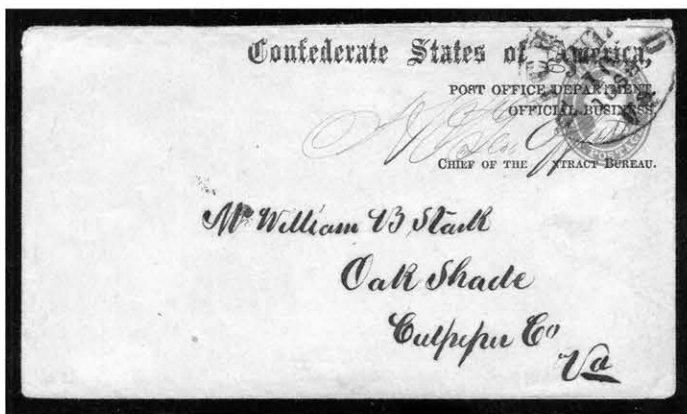 Confederate States of America,
POST OFFICE DEPARTMENT.
OFFICIAL BUSINESS
CHIEF OF THE XTRACT BUREAU.
Mr William B Stark
Oak Shade
Culpeper Co
Va